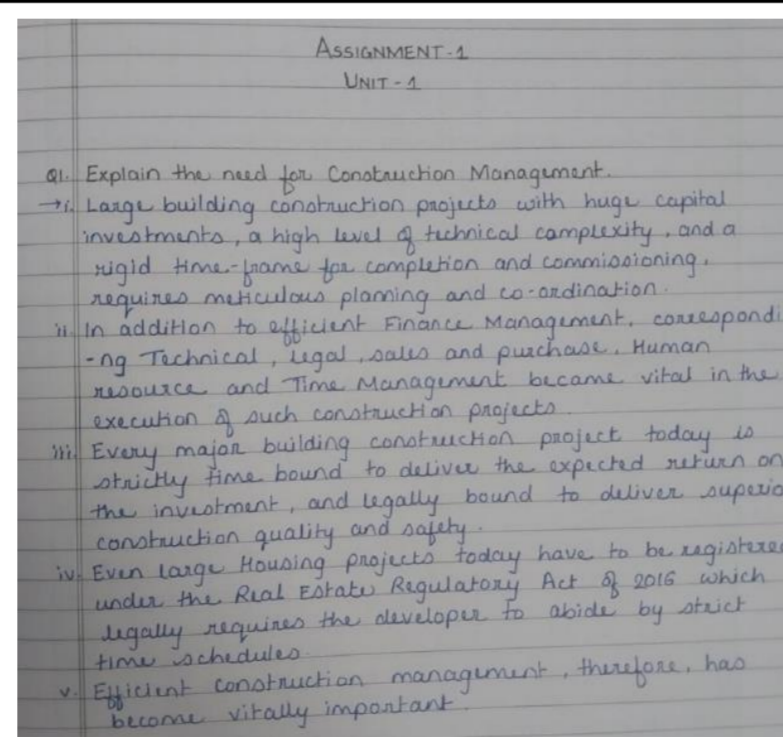 ASSIGNMENT-1
UNIT-1
Q1. Explain the need for Construction Management.
→i. Large building construction projects with huge capital
investments, a high level of technical complexity, and a
rigid time-frame for completion and commissioning,
requires meticulous planning and co-ordination.
ii. In addition to efficient Finance Management, correspondi
-ng Technical, Legal, sales and purchase, Human
resource and Time Management became vital in the
execution of such construction projects.
iii. Every major building construction project today is
strictly time bound to deliver the expected return on
the investment, and legally bound to deliver superio
construction quality and safety.
iv. Even large Housing projects today have to be registere
under the Real Estate Regulatory Act of 2016 which
legally requires the developer to abide by strict
time schedules.
v. Efficient construction management, therefore, has
become vitally important.